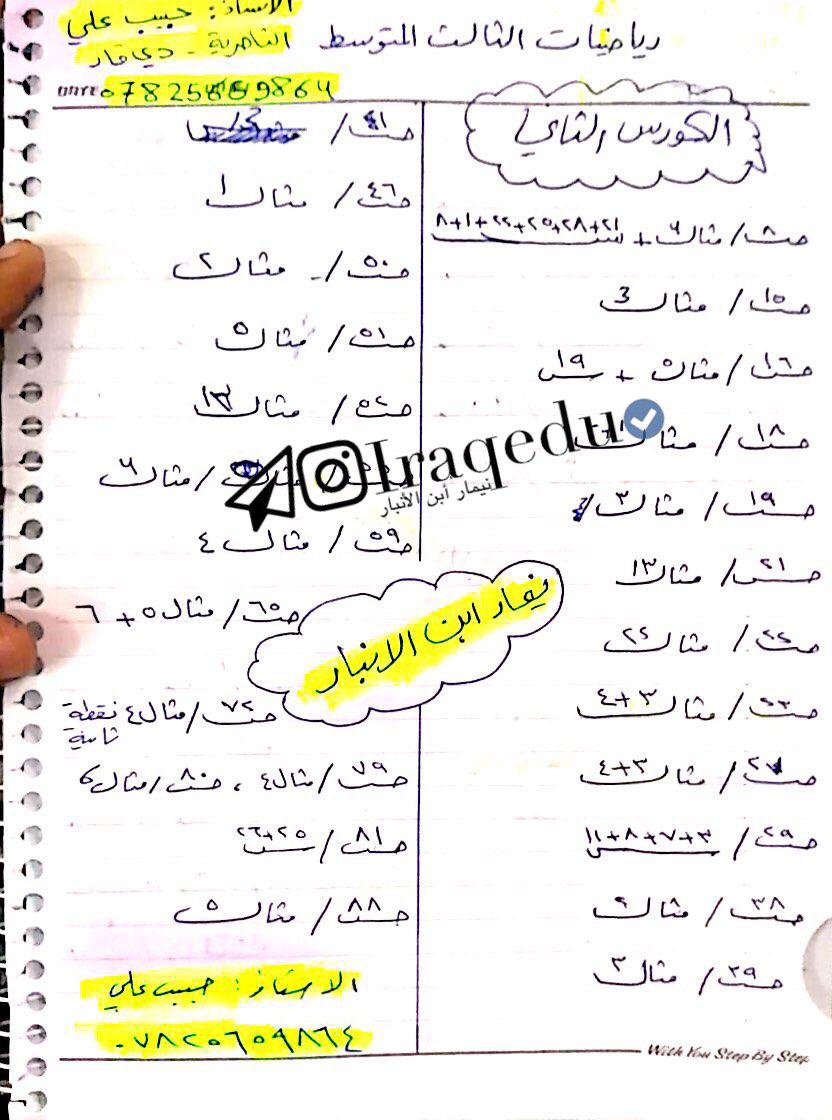 الاستاذ: حبيب علي
رياضيات الثالث المتوسط الناصرية - ذي قار
DATE
الكورس الثاني
ص٨ / مثال ٦ + س ٢١+٢٨+٢٥+٢٢+١+٨
ص١٥ / مثال 3
ص١٦ / مثال ٥ + س١٩
ص١٨ / مثال
ص١٩ / مثال ٣
ص٢١ / مثال ١٣
ص٢٢ / مثال ٢٤
ص٢٣ / مثال ٣+٤
ص٢٧ / مثال ٣+٤
ص٢٩ / س ٣+٧+٨+١١
ص٣٨ / مثال ٢
ص٣٩ / مثال ٣
ص٤١ /
ص٤٦ / مثال ١
ص٥٠ / مثال ٢
ص٥١ / مثال ٥
ص٥٢ / مثال
/ مثال ٦
ص٥٩ / مثال ٤
ص٦٥ / مثال ٥ + ٦
ص٧٢ / مثال ٤ نقطة
ثانية
ص٧٩ / مثال ٤ ، ص٨٠ / مثال ٦
ص٨١ / س ٢٥+٢٦
ص٨٨ / مثال ٥
Iraqedu
نيمار أبن الأنبار
نيمار ابن الانبار
الاستاذ: حبيب علي
٠٧٨٢٥٦٥٩٨٦٤
With You Step By Step